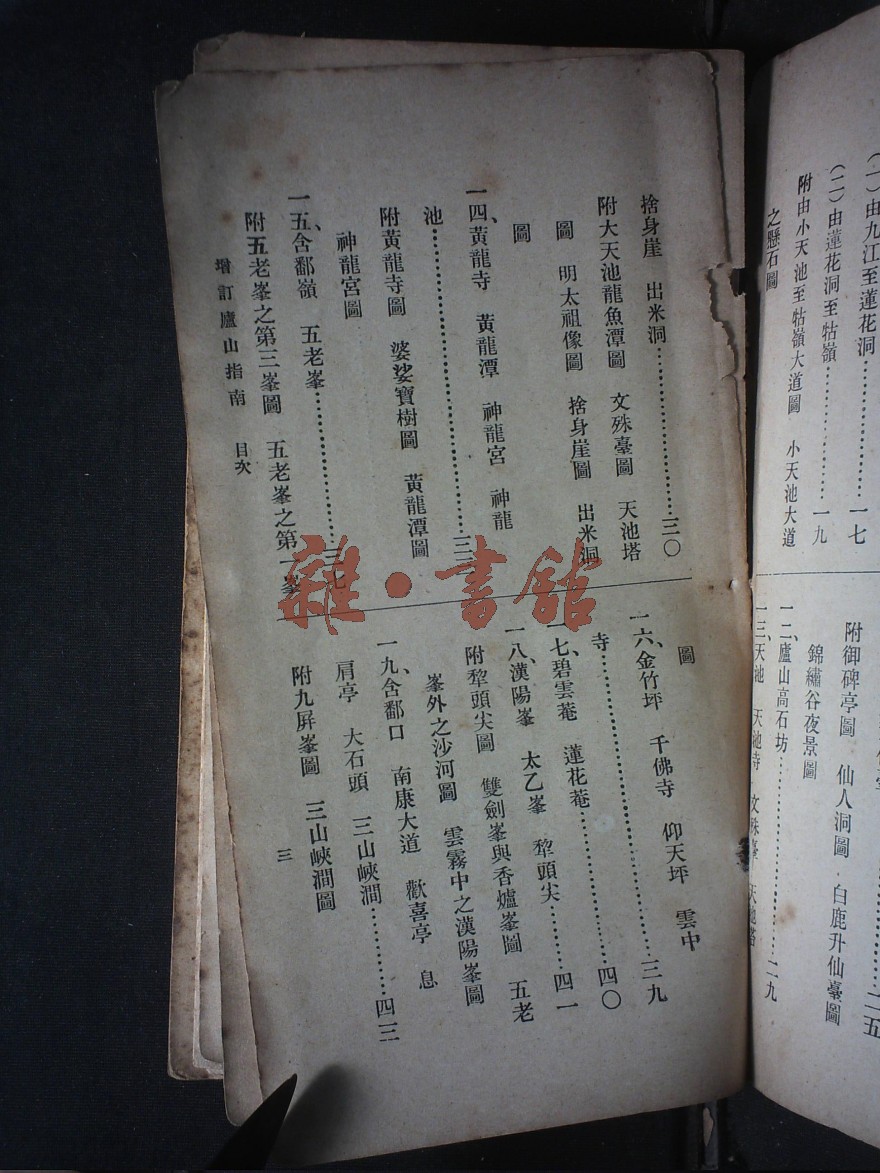 (二)由蓮花洞至牯嶺……一九
附由小天池至牯嶺大道圖 小天池大道
之懸石圖
附御碑亭圖 仙人洞圖 白鹿升仙臺圖
錦繡谷夜景圖
一二、廬山高石坊……二九
捨身崖 出米洞……三〇
附大天池龍魚潭圖 文殊臺圖 天池塔
圖 明太祖像圖 捨身崖圖 出米洞
圖
一四、黃龍寺 黃龍潭 神龍宮 神龍
池……三三
附黃龍寺圖 婆娑寶樹圖 黃龍潭圖
神龍宮圖
一五、含鄱嶺 五老峯……三七
附五老峯之第三峯圖 五老峯之第一峯
增訂廬山指南 目次
圖
一六、金竹坪 千佛寺 仰天坪 雲中
寺……三九
一七、碧雲菴 蓮花菴……四〇
一八、漢陽峯 太乙峯 犂頭尖……四一
附犂頭尖圖 雙劍峯與香爐峯圖 五老
峯外之沙河圖 雲霧中之漢陽峯圖
一九、含鄱口 南康大道 歡喜亭 息
肩亭 大石頭 三山峽澗……四三
附九屏峯圖 三山峽澗圖
三
雜·書館